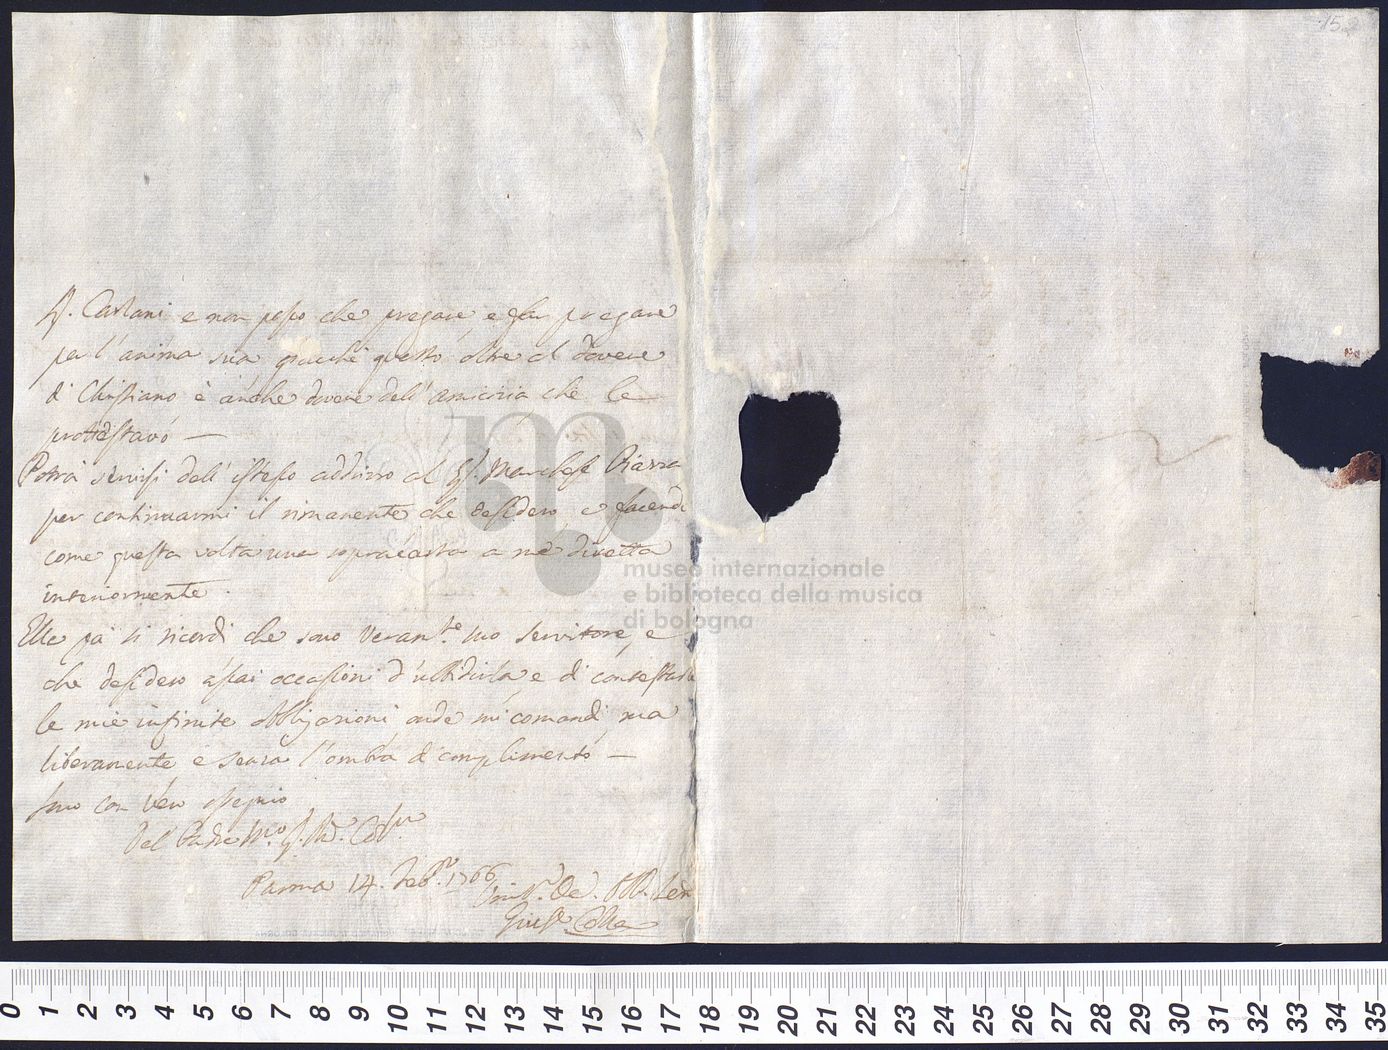 152
P. Carlani e non posso che pregare e far pregare
per l'anima sua giacché questo oltre al dovere
di Christiano è anche dovere dell'amicizia che le
protestavo —
Potrà servirsi dell'istesso addrizzo al Sig. Marchese Piazza
per continuarmi il rimanente che desidero, e facendo
come questa volta una sopracarta a mè diretta
interiormente.
Elle poi si ricordi che sono veram.te suo servitore, e
che desidero assai occasioni d'ubbidirla e di contestarle
le mie infinite obbligazioni onde mi comandi, ma
liberamente e senza l'ombra di complimento —
sono con vero ossequio
Del Padre M.ro
Parma 14. Feb.ro 1766
Umil.mo De. Obb. Ser
Gius.e Colla
museo internazionale
e biblioteca della musica
di bologna
0 1 2 3 4 5 6 7 8 9 10 11 12 13 14 15 16 17 18 19 20 21 22 23 24 25 26 27 28 29 30 31 32 33 34 35